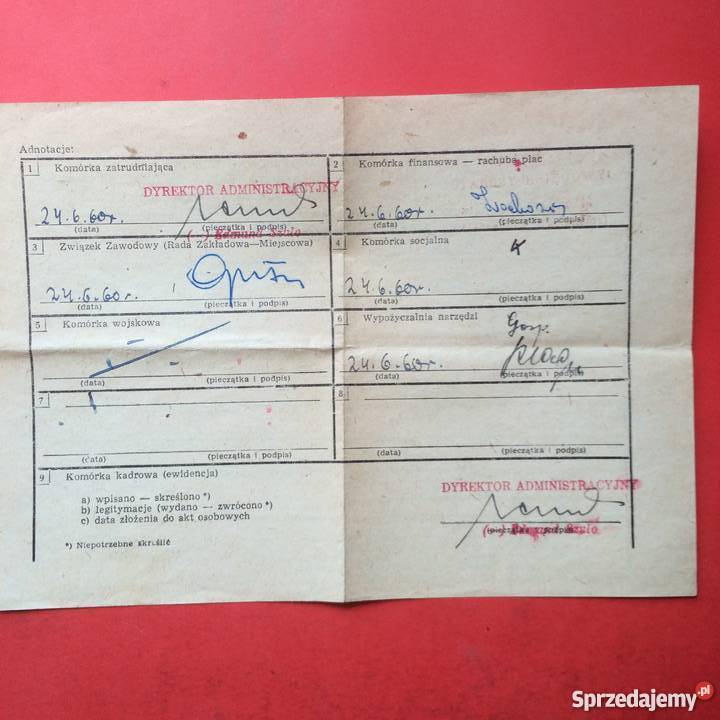 Adnotacje:
1 Komórka zatrudniająca
DYREKTOR ADMINISTRACYJNY
24.6.60r.
(data) (pieczątka i podpis)
(-) Edmund Szulo
2 Komórka finansowa — rachuba płac
24.6.60r.
(data) (pieczątka i podpis)
3 Związek Zawodowy (Rada Zakładowa—Miejscowa)
24.6.60r.
(data) (pieczątka i podpis)
4 Komórka socjalna
24.6.60r.
(data) (pieczątka i podpis)
5 Komórka wojskowa
(data) (pieczątka i podpis)
6 Wypożyczalnia narzędzi
Gosp.
24.6.60r.
(data) (pieczątka i podpis)
7
(data) (pieczątka i podpis)
8
(data) (pieczątka i podpis)
9 Komórka kadrowa (ewidencja)
a) wpisano — skreślono *)
b) legitymacje (wydano — zwrócono *)
c) data złożenia do akt osobowych
*) Niepotrzebne skreślić
DYREKTOR ADMINISTRACYJNY
(pieczątka i podpis)
Sprzedajemy.pl